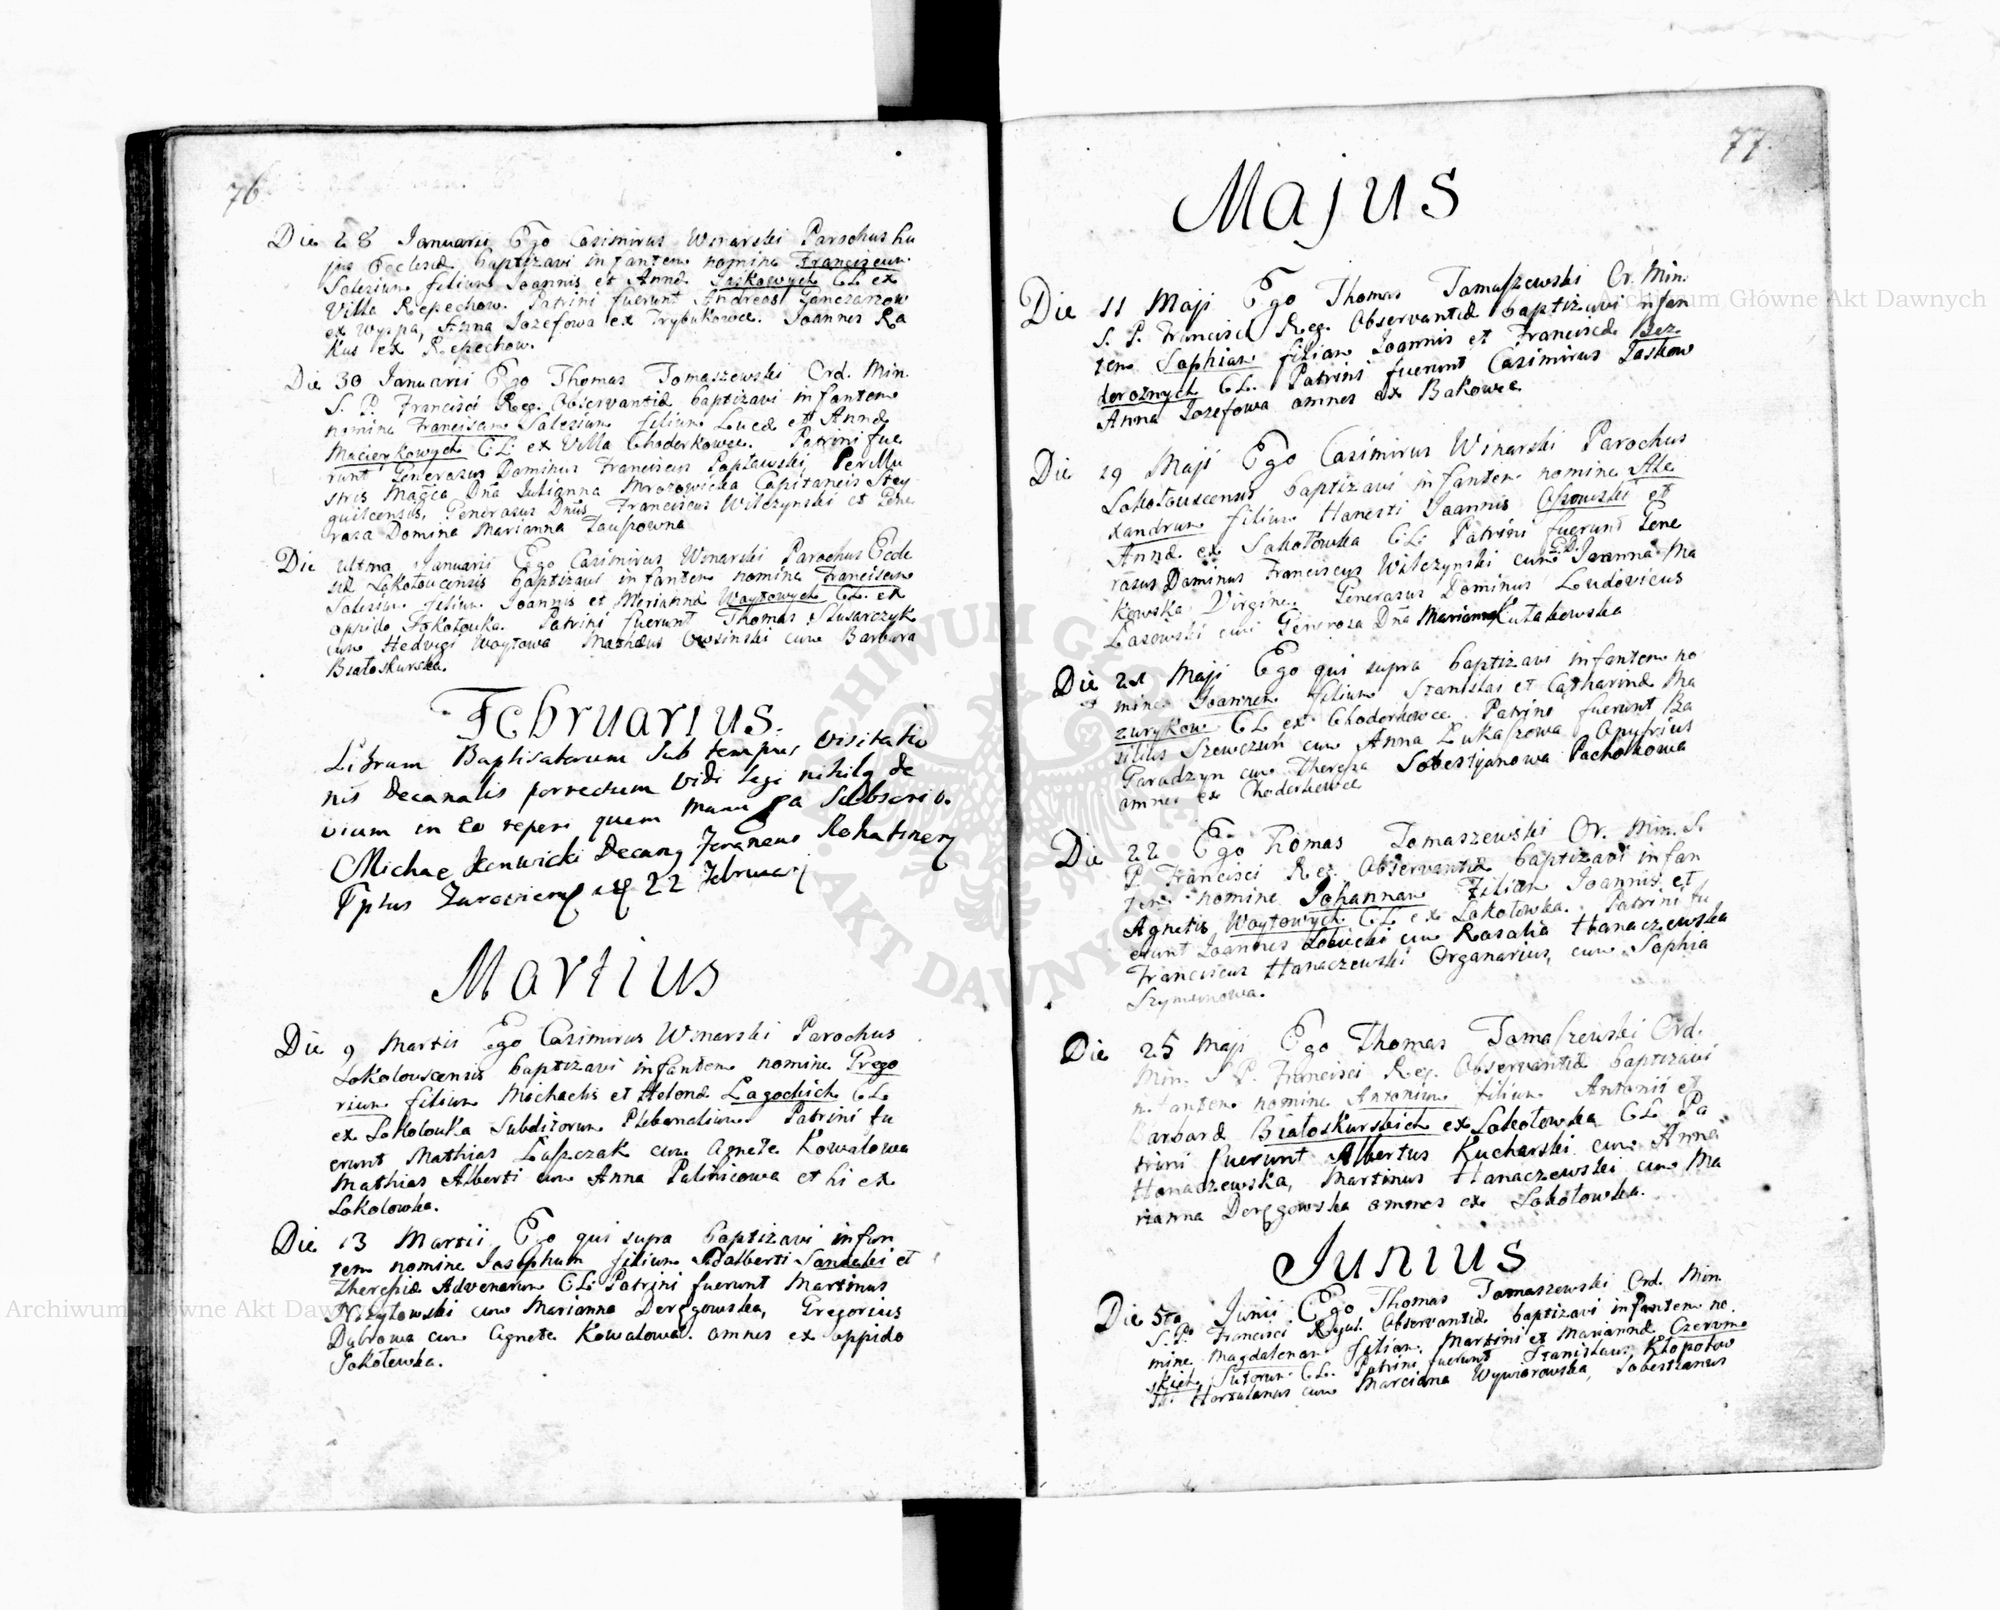 76
Die 28 Januarii Ego Casimirus Winarski Parochus hu
jus Ecclesiæ baptizavi infantem nomine Franciscum
Salesium filium Joannis et Annæ Jaskowych CL ex
Villa Repechow. Patrini fuerunt Andreas Ganczarzow
ex Wyspa, Anna Jozefowa ex Trybukowce. Joannes Ra
kus ex Repechow.
Die 30 Januarii Ego Thomas Tomaszewski Ord. Min.
S. P. Francisci Reg. Observantiæ baptizavi infantem
nomine Franciscum Salesium filium Lucæ et Annæ
Macieykowych CL: ex Villa Choderkowce. Patrini fue
runt Generosus Dominus Franciscus Popławski, Perillu
stris Magca Dña Julianna Mrozowicka Capitaneis Steg
quilcensis, Generosus Dnus Franciscus Wilczynski et Gene
rosa Domina Marianna Zaupowna
Die ultma Januarii Ego Casimirus Winarski Parochus Eccle
siæ Sokołoucensis baptizavi infantem nomine Franciscum
Salesium filium Joannis et Meriannæ Woytowych CL. ex
oppido Sokołouka. Patrini fuerunt Thomas Slusarczyk
cum Hedvigi Woytowa Mathæus Owsinski cum Barbara
Białoskurska.
Februarius.
Librum Baptisatorum sub tempus Visitatio
nis Decanalis porrectum vidi legi nihilq de
vium in eo reperi quem manu pa Subscribo.
Michae Decanq Foraneus Rohatinen
22 Februarj
Martius
Die 9 Martii Ego Casimirus Winarski Parochus
Sokolouscensis baptizavi infantem nomine Grego
rium filium Michaelis et Helenæ Lagodzich CL
ex Sokolouka Subditorum Plebanalium Patrini fu
erunt Mathias Lupczak cum Agnete Kowalowa
Mathias Alberti cum Anna Palinicowa et hi ex
Sokolowka.
Die 13 Martii Ego qui supra baptizavi infan
tem nomine Josephum filium Adalberti Sandecki et
Theresiæ Advenarum CL: Patrini fuerunt Martinus
Nizyłowski cum Marianna Deręgowska, Gregorius
Dąbrowa cum Agnete Kowalowa. omnes ex oppido
Sokołowka.
77.
Majus
Die 11 Maji Ego Thomas Tomaszewski Or. Min.
S. P. Francisci Reg. Observantiæ baptizavi infan
tem Sophiam filiam Joannis et Franciscæ Bez
doroznych CL. Patrini fuerunt Casimirus Jaskow
Anna Jozefowa omnes ex Bakowce
Die 19 Maji Ego Casimirus Winarski Parochus
Sokołouscensis baptizavi infantem nomine Ale
xandrum filium Honesti Joannis Osowski et
Annæ ex Sokołowka CL Patrini fuerunt Gene
rosus Dominus Franciscus Wilczynski cum G.D. Joanna Ma
kowska Virgine. Generosus Dominus Ludovicus
Lasowski cum Generosa Dña Marianna Kułakowska
Die 21 Maji Ego qui supra baptizavi infantem no
mine Joannem filium Stanislai et Catharinæ Ma
zurykow CL ex Choderkowce Patrini fuerunt Ba
silius Szewczuń cum Anna Łukaszowa Opyfrius
Garadzyn cum Theresa Sobestyanowa Pachołkowa
omnes ex Choderkowce
Die 22 Ego Thomas Tomaszewski Or. Min. S.
P. Francisci Reg. Observantiæ baptizavi infan
tem nomine Johannam Filiam Joannis et
Agnetis Woytowych CL ex Sokołowka. Patrini fu
erunt Joannes Łobucki cum Rosalia Hanaczewska
Franciscus Hanaczewski Organarius, cum Sophia
Szymunowa.
Die 25 Maji Ego Thomas Tomaszewski Ord.
Min. S P. Francisci Reg. Observantiæ baptizavi
infantem nomine Antonium filium Antonii et
Barbaræ Białoskurskich ex Sokołowka CL Pa
trini fuerunt Albertus Kucharski cum Anna
Hanaczewska, Martinus Hanaczewski cum Ma
rianna Deręgowska omnes ex Sokołowka.
Junius
Die 5ta Junii Ego Thomas Tomaszewski Ord. Min.
S.P. Francisci Regul. Observantiæ baptizavi infantem no
mine Magdalenam filiam Martini et Mariannæ Czerwin
skich Sutorum CL. Patrini fuerunt Stanislaus Kłopotow
ski Hortulanus cum Marcianna Wywiorowska, Sobestianus
Archiwum Główne Akt Dawnych
Archiwum Główne Akt Dawnych
ARCHIWUM GŁÓWNE AKT DAWNYCH